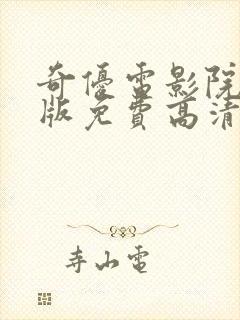 奇優電影院
版免費高清
寺山電